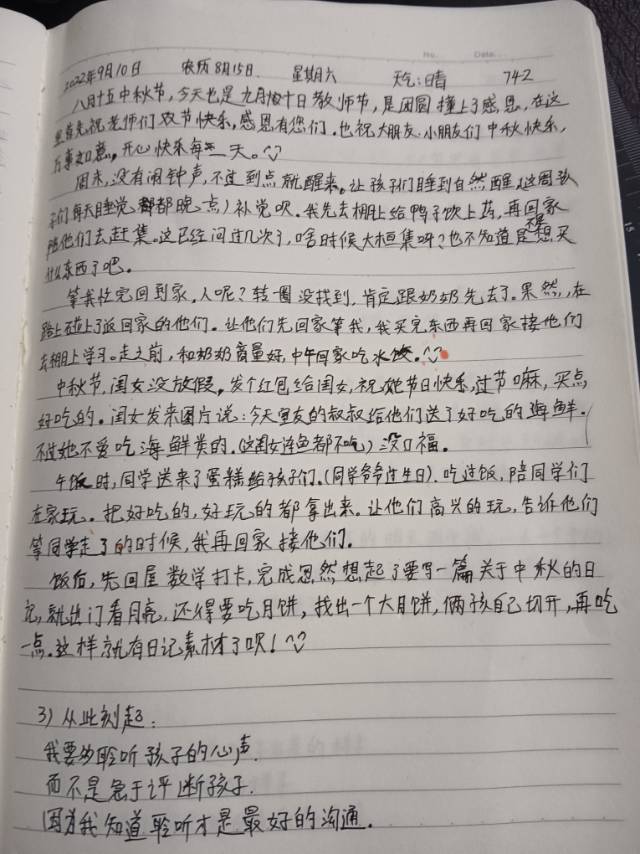 No. Date.
2022年9月10日 农历8月15日 星期六 天气:晴 742
八月十五中秋节,今天也是九月十日教师节,是团圆撞上了感恩,在这
里首先祝老师们农节快乐,感恩有您们.也祝大朋友小朋友们中秋快乐,
万事如意,开心快乐每一天。
周末,没有闹钟声,不过到点就醒来。让孩子们睡到自然醒,(这周孩
子们每天睡觉都晚点)补觉呗。我先去棚上给鸭子饮上药,再回家
陪他们去赶集。这已经问过几次了,啥时候大桓集呀?也不知道是不是想买
什么东西了吧。
等我忙完回到家,人呢?转一圈没找到,肯定跟奶奶先去了。果然,在
路上碰上了返回家的他们。让他们先回家等我,我买完东西再回家接他们
去棚上学习。走之前,和奶奶商量好,中午回家吃水饺。
中秋节,闺女没放假,发个红包给闺女,祝她节日快乐,过节嘛,买点
好吃的。闺女发来图片说:今天室友的叔叔给他们送了好吃的海鲜.
不过她不爱吃海鲜类的.(这闺女连鱼都不吃)没口福。
午饭时,同学送来了蛋糕给孩子们.(同学爷爷过生日).吃过饭,陪同学们
在家玩。把好吃的,好玩的都拿出来.让他们高兴的玩,告诉他们
等同学走了的时候,我再回家接他们.
饭后,先回屋数学打卡,完成忽然想起了要写一篇关于中秋的日
记,就出门看月亮,还得要吃月饼,找出一个大月饼,俩孩自己切开,再吃
一点.这样就有日记素材了呗!
3)从此刻起:
我要多聆听孩子的心声.
而不是急于评断孩子.
因为我知道聆听才是最好的沟通.